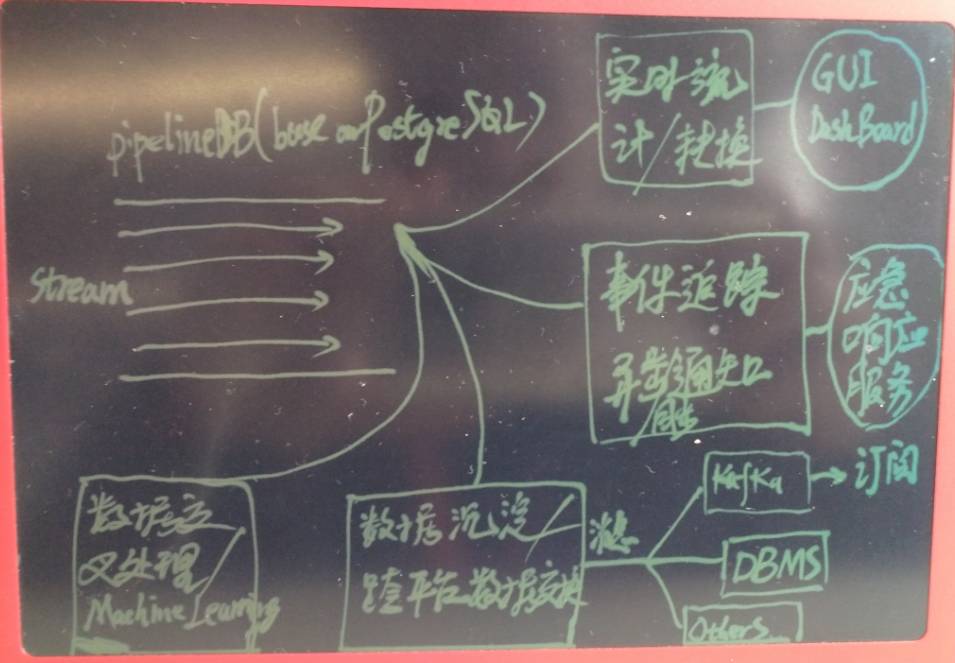 pipelineDB(base on PostgreSQL)
Stream
实时统
计/转换
GUI
DashBoard
事件追踪
异步通知
应急
响应
服务
数据
处理/
Machine Learning
数据沉淀/
跨平台数据交换
Kafka
订阅
DBMS
Others